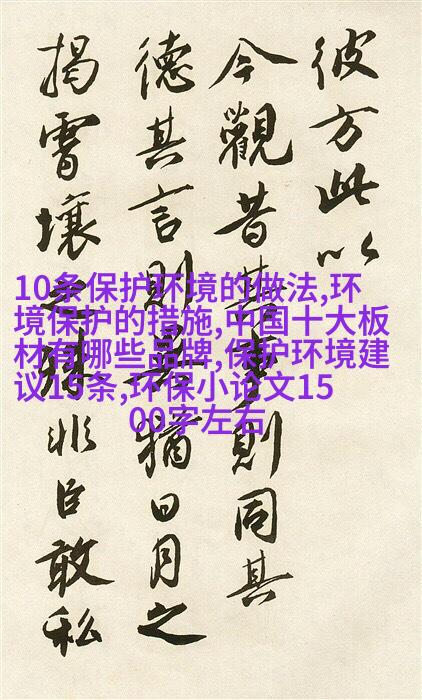 彼方此以
今觀昔其事則同其
德其言則異猶日月之
揭霄壤之殊非臣敢私
10条保护环境的做法,环
境保护的措施,中国十大板
材有哪些品牌,保护环境建
议15条,环保小论文15
00字左右